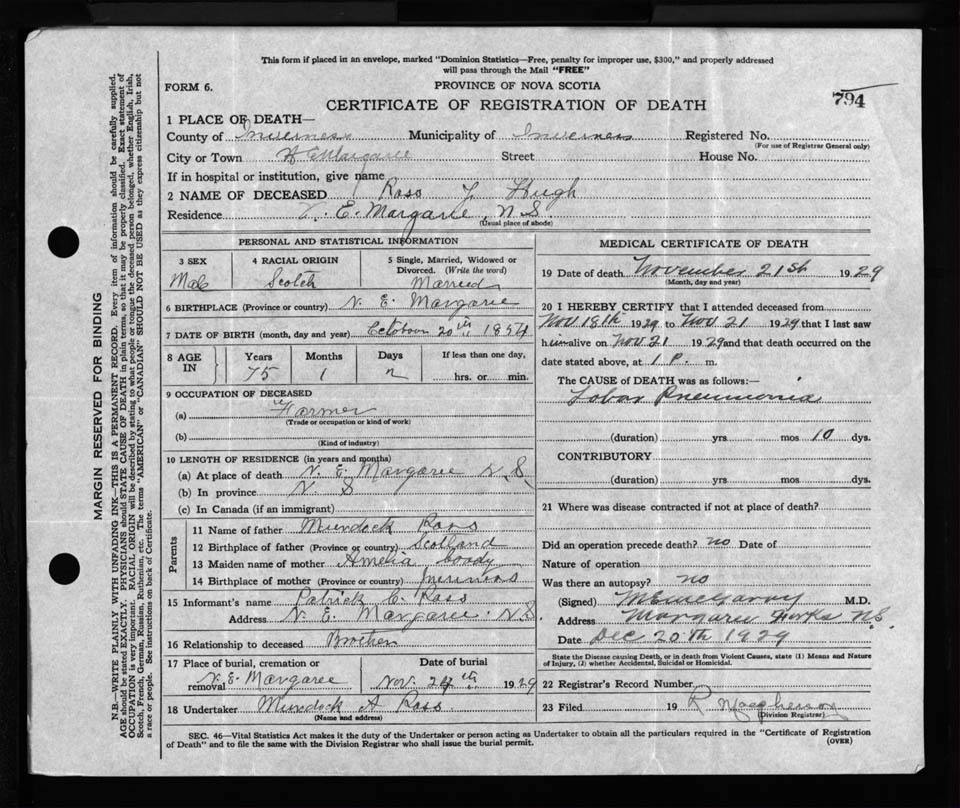 This form if placed in an envelope, marked "Dominion Statistics—Free, penalty for improper use, $300," and properly addressed
will pass through the Mail "FREE"
FORM 6.
PROVINCE OF NOVA SCOTIA
794
CERTIFICATE OF REGISTRATION OF DEATH
1 PLACE OF DEATH—
County of Inverness Municipality of Inverness Registered No.
(For use of Registrar General only)
City or Town N E Margaree Street House No.
If in hospital or institution, give name
2 NAME OF DECEASED Ross J Hugh
Residence N. E. Margarie N.S.
(Usual place of abode)
PERSONAL AND STATISTICAL INFORMATION
3 SEX 4 RACIAL ORIGIN 5 Single, Married, Widowed or
Divorced. (Write the word)
Male Scotch Married
6 BIRTHPLACE (Province or country) N. E. Margarie
7 DATE OF BIRTH (month, day and year) October 20th 1854
8 AGE IN Years Months Days If less than one day,
75 1 hrs. or min.
9 OCCUPATION OF DECEASED
(a) Farmer
(Trade or occupation or kind of work)
(b)
(Kind of industry)
10 LENGTH OF RESIDENCE (in years and months)
(a) At place of death N. E. Margaree N.S.
(b) In province N. S
(c) In Canada (if an immigrant)
Parents
11 Name of father Murdock Ross
12 Birthplace of father (Province or country) Scotland
13 Maiden name of mother Amelia Coady
14 Birthplace of mother (Province or country)
15 Informant's name Patrick C Ross
Address N. E. Margaree. N.S.
16 Relationship to deceased Brother
17 Place of burial, cremation or Date of burial
removal N.E. Margaree Nov. 24th 1929
18 Undertaker Murdock A Ross
(Name and address)
MEDICAL CERTIFICATE OF DEATH
19 Date of death November 21st 1929
(Month, day and year)
20 I HEREBY CERTIFY that I attended deceased from
Nov 18th 1929 to Nov 21 1929 that I last saw
him alive on Nov. 21 1929 and that death occurred on the
date stated above, at 1 P. m.
The CAUSE OF DEATH was as follows:—
Lobar Pneumonia
(duration) yrs mos 10 dys.
CONTRIBUTORY
(duration) yrs mos dys.
21 Where was disease contracted if not at place of death?
Did an operation precede death? no Date of
Nature of operation
Was there an autopsy? no
(Signed) M.D.
Address Margaree Forks N.S.
Date Dec 20th 1929
State the Disease causing Death, or in death from Violent Causes, state (1) Means and Nature
of Injury, (2) whether Accidental, Suicidal or Homicidal.
22 Registrar's Record Number
23 Filed 19 R Macpherson
(Division Registrar)
SEC. 46—Vital Statistics Act makes it the duty of the Undertaker or person acting as Undertaker to obtain all the particulars required in the "Certificate of Registration
of Death" and to file the same with the Division Registrar who shall issue the burial permit.
(OVER)
MARGIN RESERVED FOR BINDING
N.B.—WRITE PLAINLY WITH UNFADING INK—THIS IS A PERMANENT RECORD. Every item of information should be carefully supplied.
AGE should be stated EXACTLY. PHYSICIANS should STATE CAUSE OF DEATH in plain terms, so that it may be properly classified. Exact statement of
OCCUPATION is very important. RACIAL ORIGIN will be described by stating to what people or tongue the deceased person belonged, whether English, Irish,
Scotch, French, German, Russian, Ruthenian, etc. The terms "AMERICAN" or "CANADIAN" SHOULD NOT BE USED as they express citizenship but not
a race or people. See instructions on back of Certificate.